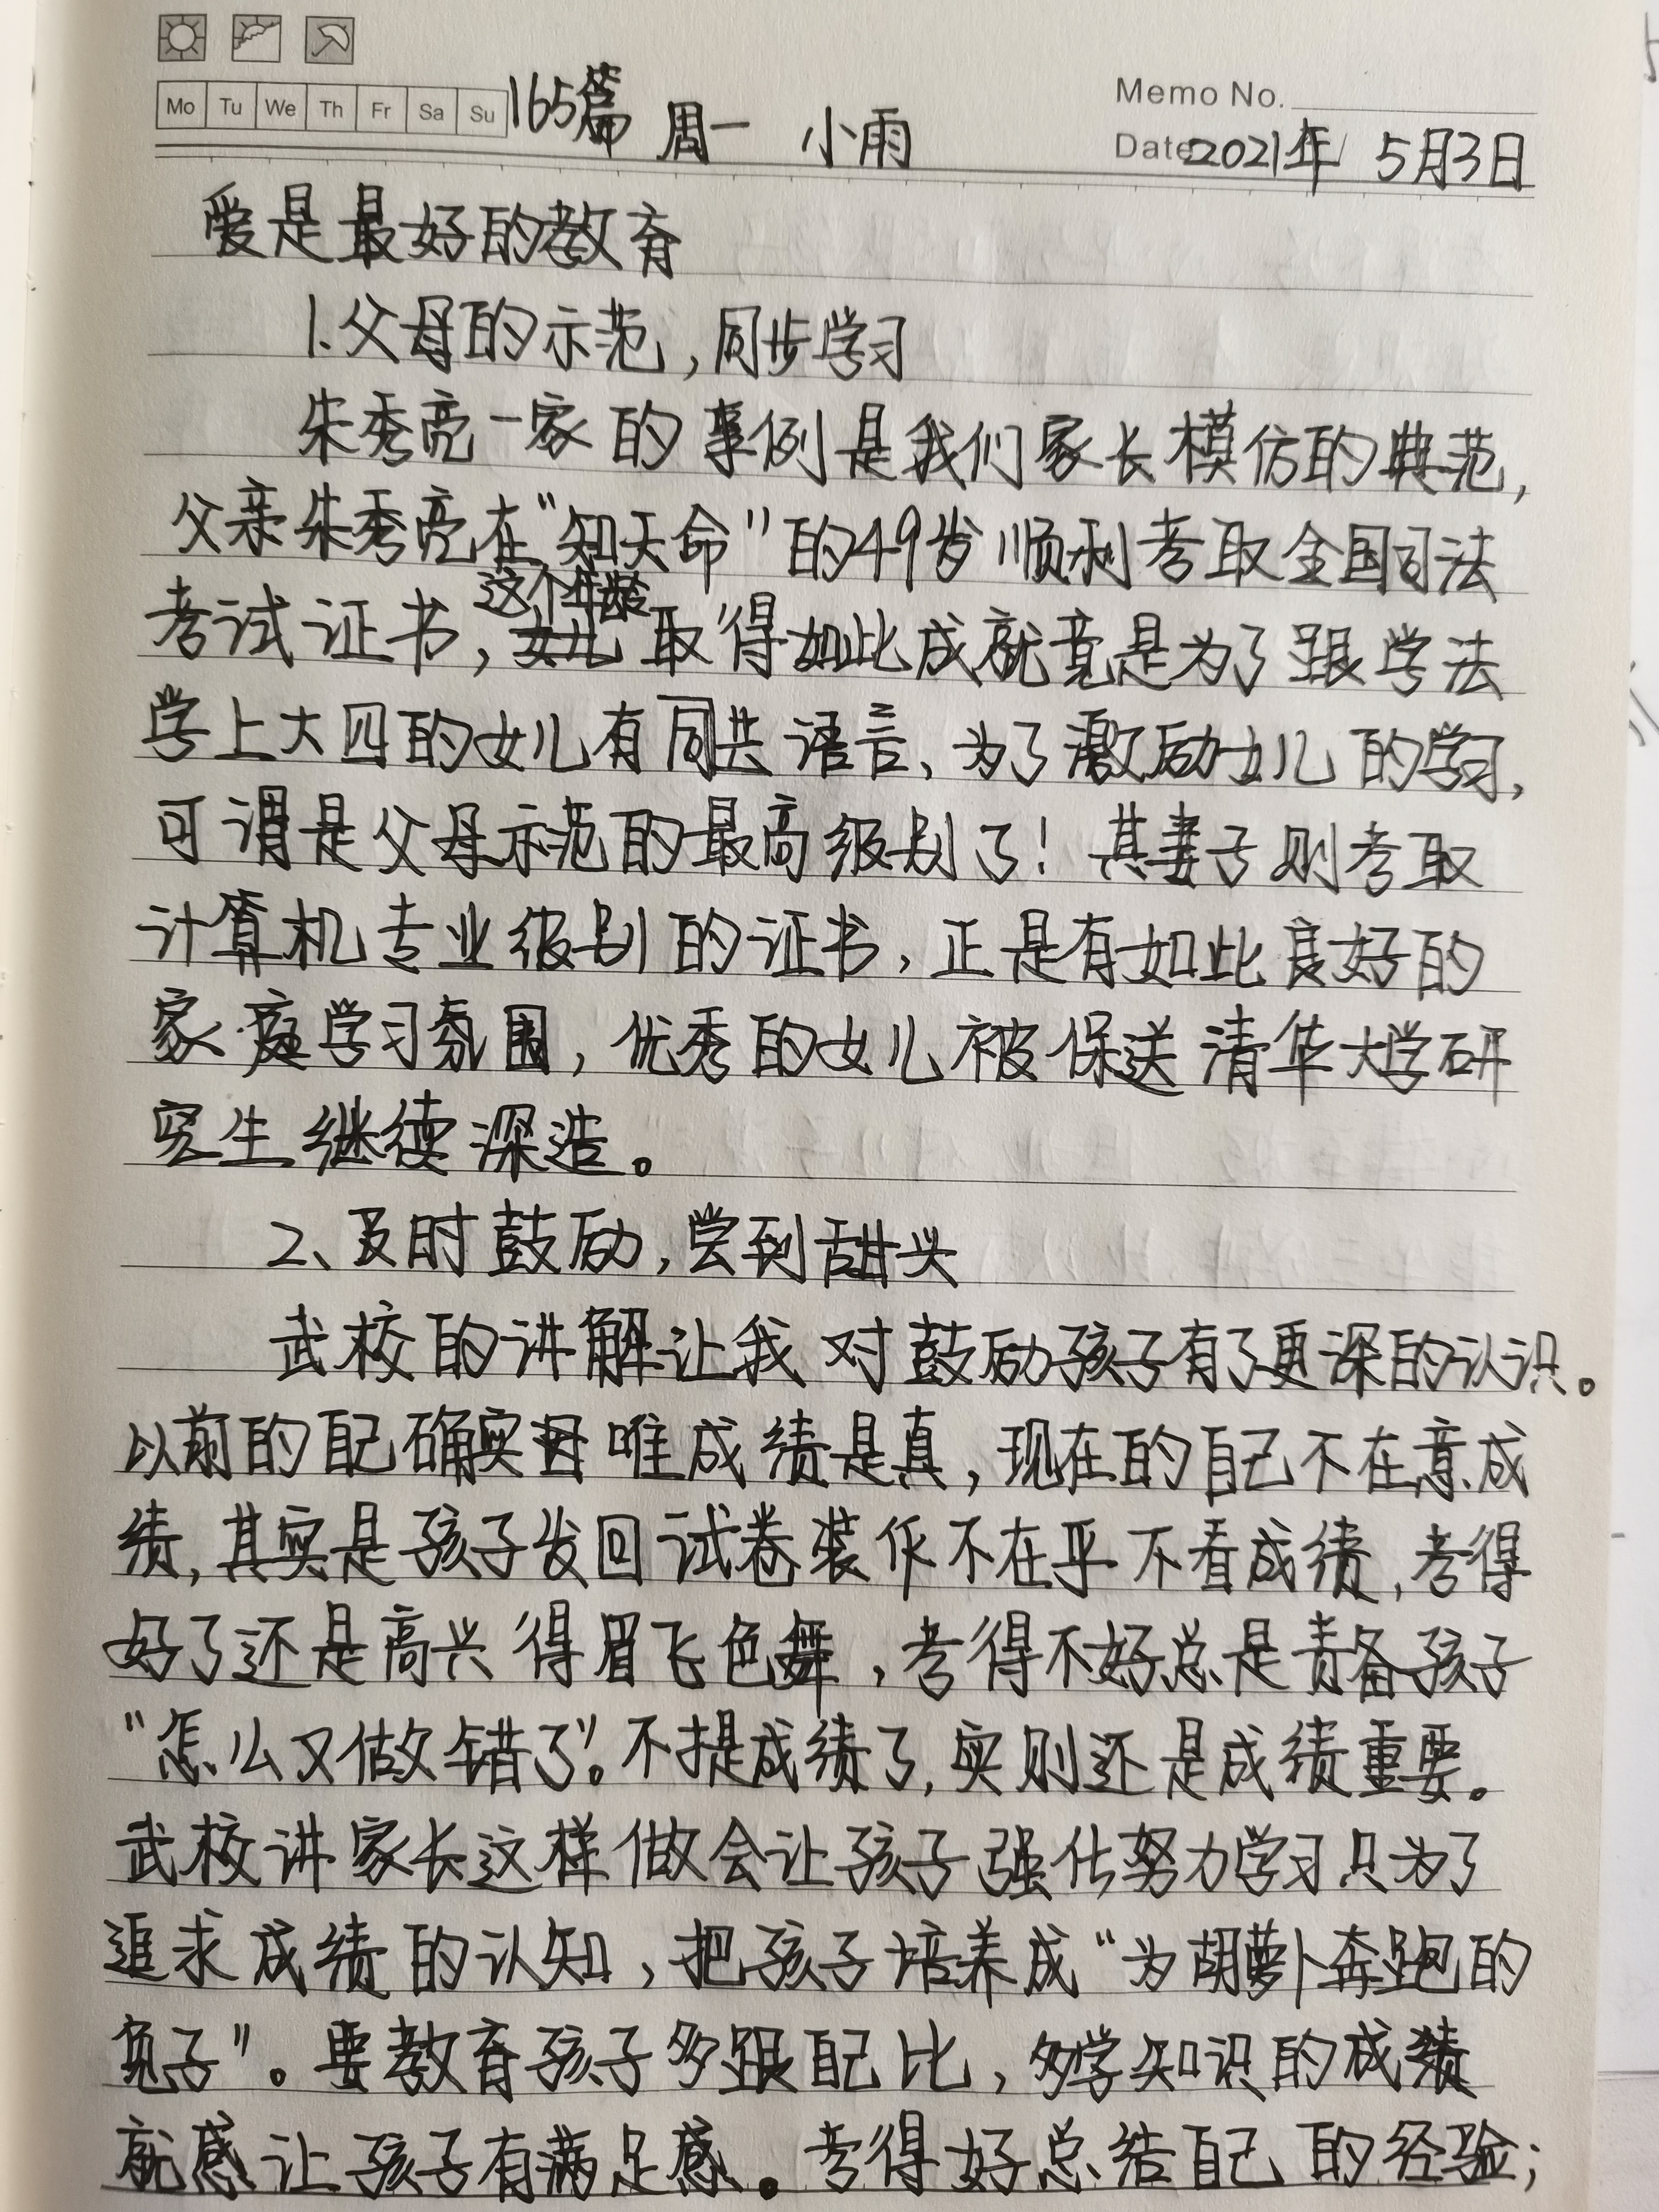 Mo Tu We Th Fr Sa Su 165篇 周一 小雨
Memo No.
Date 2021年 5月3日
爱是最好的教育
1.父母的示范,同步学习
朱秀亮一家的事例是我们家长模仿的典范,
父亲朱秀亮在“知天命”的49岁顺利考取全国司法
这个年龄
考试证书,取得如此成就竟是为了跟学法
学上大四的女儿有同共语言、为了激励女儿的学习,
可谓是父母示范的最高级别了!其妻子则考取
计算机专业级别的证书,正是有如此良好的
家庭学习氛围,优秀的女儿被保送清华大学研
究生继续深造。
2、及时鼓励,尝到甜头
武校的讲解让我对鼓励孩子有了更深的认识。
以前的自己确实唯成绩是真,现在的自己不在意成
绩,其实是孩子发回试卷装作不在乎不看成绩,考得
好了还是高兴得眉飞色舞,考得不好总是责备孩子
“怎么又做错了”。不提成绩了,实则还是成绩重要。
武校讲家长这样做会让孩子强化努力学习只为了
追求成绩的认知,把孩子培养成“为胡萝卜奔跑的
兔子”。要教育孩子多跟自己比,多学知识的成绩
就感让孩子有满足感。考得好总结自己的经验;